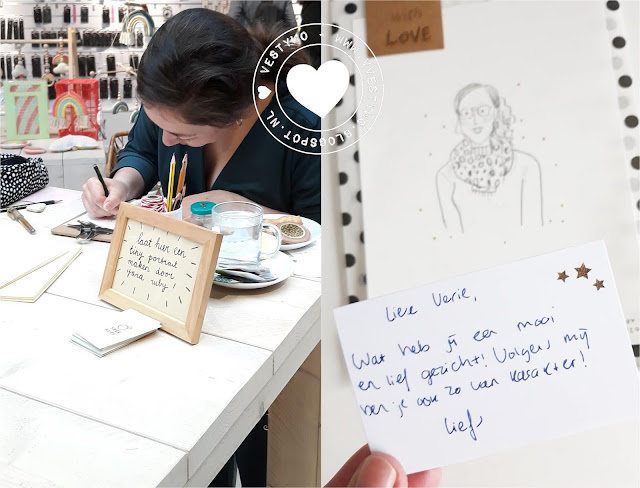 VESTYMO - WWW.VESTYMO.BLOGSPOT.NL
laat hier een
tiny portrait
maken door
yara ruby!
with
LOVE
Lieve Verie,
Wat heb jij een mooi
en lief gezicht! Volgens mij
ben je ook zo van karakter!
Liefs